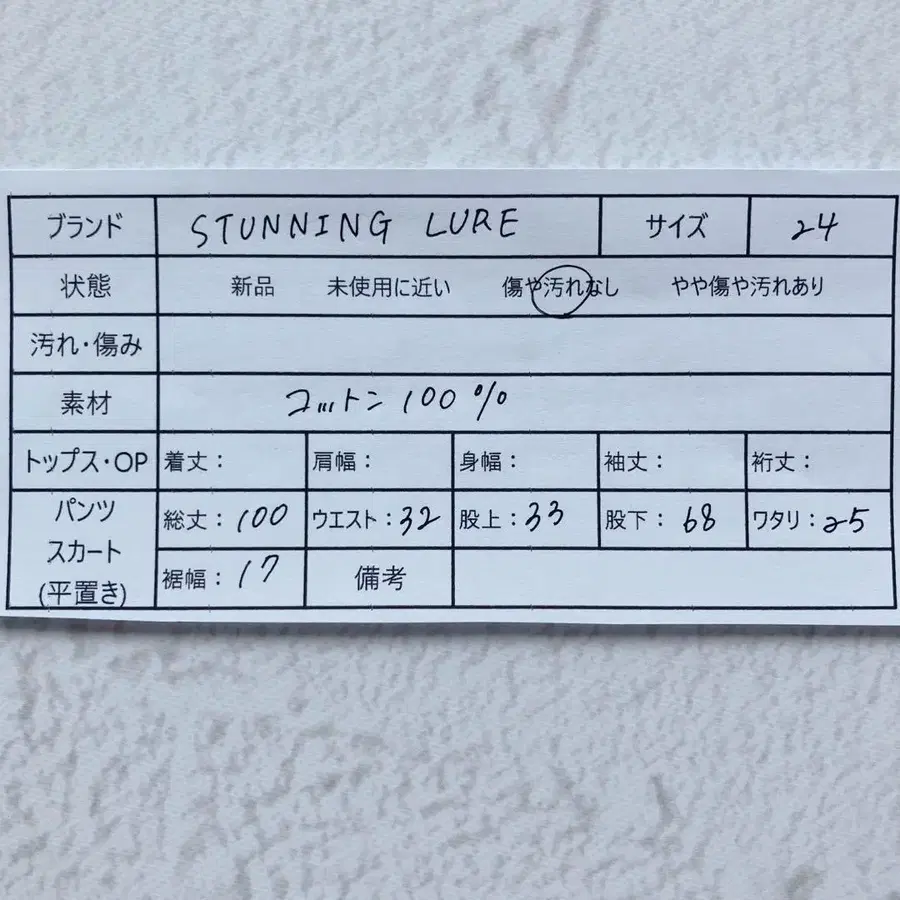 ブランド STUNNING LURE サイズ 24
状態 新品 未使用に近い 傷や汚れなし やや傷や汚れあり
汚れ・傷み
素材 コットン 100%
トップス・OP 着丈: 肩幅: 身幅: 袖丈: 裄丈:
パンツ
スカート
(平置き)
総丈:100 ウエスト:32 股上:33 股下:68 ワタリ:25
裾幅:17 備考